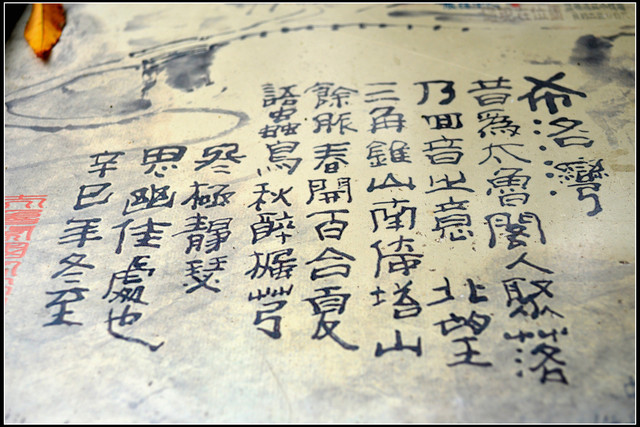 希洛灣
昔為太魯閣人聚落
乃回音之意 北望
三角錐山南倚塔山
餘脈春開百合夏
語蟲鳥秋醉櫸芎
冬極靜瑟
思幽佳處也
辛巳年冬至